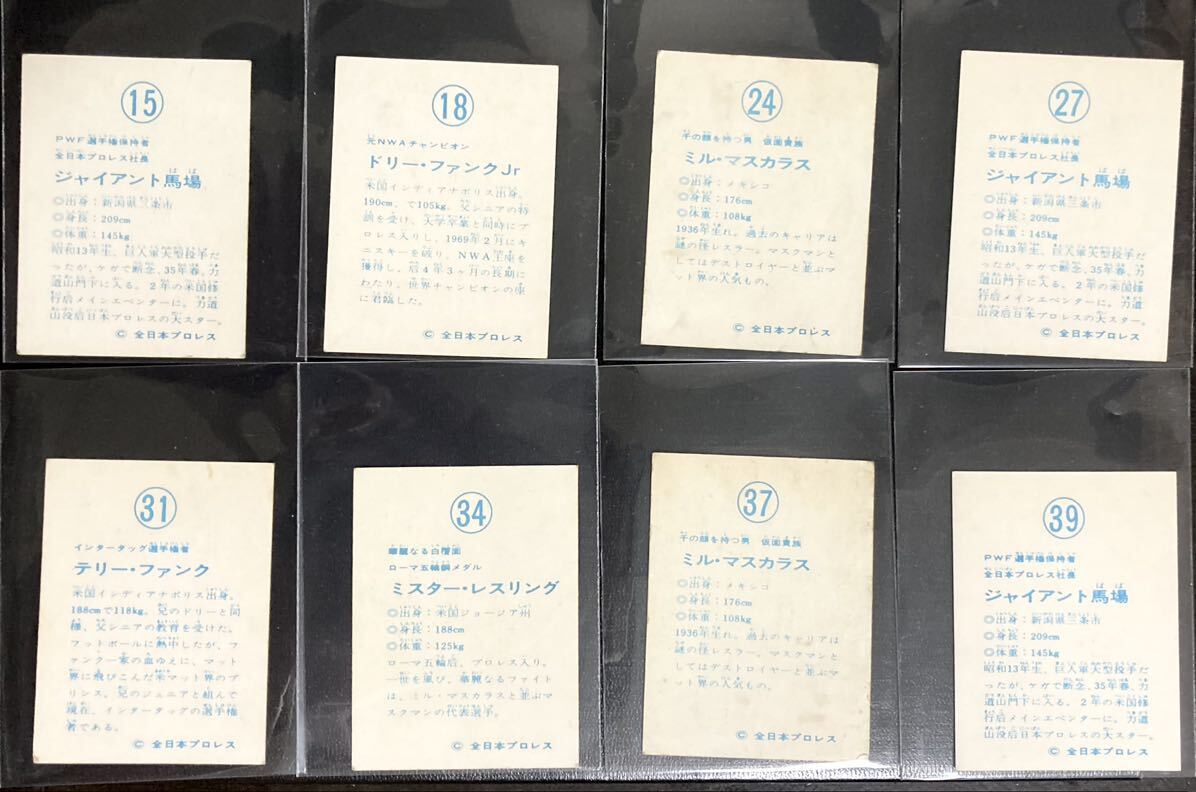 15
PWF選手権保持者
全日本プロレス社長
ジャイアント馬場
◎出身：新潟県三条市
◎身長：209cm
◎体重：145kg
昭和13年生、巨人軍大型投手だ
ったが、ケガで断念、35年春、力
道山門下に入る。2年の米国修
行后メインエベンターに。力道
山没后日本プロレスの大スター。
© 全日本プロレス
18
元NWAチャンピオン
ドリー・ファンクJr
米国インディアナポリス出身。
190cm、で105kg。父シニアの特
訓を受け、大学卒業と同時にプ
ロレス入りし、1969年2月にキ
ニスキーを破り、NWA王座を
獲得し、后4年3ヶ月の長期に
わたり、世界チャンピオンの座
に君臨した。
© 全日本プロレス
24
千の顔を持つ男 仮面貴族
ミル・マスカラス
◎出身：メキシコ
◎身長：176cm
◎体重：108kg
1936年生れ。過去のキャリアは
謎の怪レスラー。マスクマンと
してはデストロイヤーと並ぶマ
ット界の人気もの。
© 全日本プロレス
27
PWF選手権保持者
全日本プロレス社長
ジャイアント馬場
◎出身：新潟県三条市
◎身長：209cm
◎体重：145kg
昭和13年生、巨人軍大型投手だ
ったが、ケガで断念、35年春、力
道山門下に入る。2年の米国修
行后メインエベンターに。力道
山没后日本プロレスの大スター。
© 全日本プロレス
31
インタータッグ選手権者
テリー・ファンク
米国インディアナポリス出身。
188cmで118kg。兄のドリーと同
様、父シニアの教育を受けた。
フットボールに熱中したが、フ
ァンク一家の血ゆえに、マット
界に飛びこんだ米マット界のプ
リンス。兄のジュニアと組んで
現在、インタータッグの選手権
者である。
© 全日本プロレス
34
華麗なる白覆面
ローマ五輪銅メダル
ミスター・レスリング
◎出身：米国ジョージア州
◎身長：188cm
◎体重：125kg
ローマ五輪后、プロレス入り。
一世を風び、華麗なるファイト
は、ミル・マスカラスと並ぶマ
スクマンの代表選手。
© 全日本プロレス
37
千の顔を持つ男 仮面貴族
ミル・マスカラス
◎出身：メキシコ
◎身長：176cm
◎体重：108kg
1936年生れ。過去のキャリアは
謎の怪レスラー。マスクマンと
してはデストロイヤーと並ぶマ
ット界の人気もの。
© 全日本プロレス
39
PWF選手権保持者
全日本プロレス社長
ジャイアント馬場
◎出身：新潟県三条市
◎身長：209cm
◎体重：145kg
昭和13年生、巨人軍大型投手だ
ったが、ケガで断念、35年春、力
道山門下に入る。2年の米国修
行后メインエベンターに。力道
山没后日本プロレスの大スター。
© 全日本プロレス